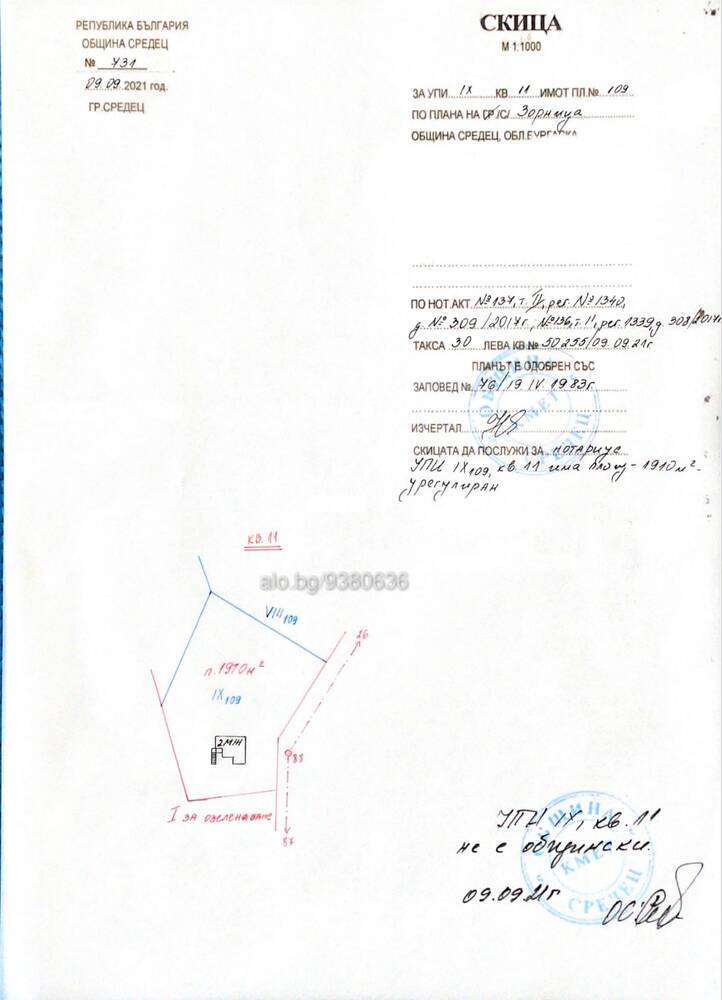 РЕПУБЛИКА БЪЛГАРИЯ
ОБЩИНА СРЕДЕЦ
№ 731
09.09.2021 год.
ГР.СРЕДЕЦ
СКИЦА
М 1:1000
ЗА УПИ IX КВ 11 ИМОТ ПЛ.№ 109
ПО ПЛАНА НА ГР./С/ Зорница
ОБЩИНА СРЕДЕЦ, ОБЛ.БУРГАСКА
ПО НОТ.АКТ №137, т. II, рег. №1340,
д. №309/2017г., №136, т. II, рег. 1339, д. 308/2017г.
ТАКСА 30 ЛЕВА КВ.№ 50255/09.09.21г
ПЛАНЪТ Е ОДОБРЕН СЪС
ЗАПОВЕД №. 76/19.IV.1983г.
ИЗЧЕРТАЛ
СКИЦАТА ДА ПОСЛУЖИ ЗА нотариус
УПИ IX109, кв. 11 има площ - 1910м² -
урегулиран
кв. 11
alo.bg/9380636
VIII109
26
п. 1910м²
IX109
2МЖ
88
I за озеленяване
87
УПИ IX, кв. 11
не е общински.
09.09.21г
ОБЩИНА
КМЕТ
СРЕДЕЦ